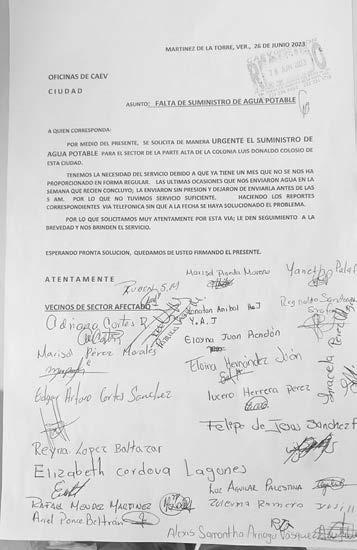 MARTINEZ DE LA TORRE, VER., 26 DE JUNIO 2023
OFICINAS DE CAEV
C I U D A D
ASUNTO: FALTA DE SUMINISTRO DE AGUA POTABLE
A QUIEN CORRESPONDA:
POR MEDIO DEL PRESENTE, SE SOLICITA DE MANERA URGENTE EL SUMINISTRO DE
AGUA POTABLE PARA EL SECTOR DE LA PARTE ALTA DE LA COLONIA LUIS DONALDO COLOSIO DE
ESTA CIUDAD.
TENEMOS LA NECESIDAD DEL SERVICIO DEBIDO A QUE YA TIENE UN MES QUE NO SE NOS HA
PROPORCIONADO EN FORMA REGULAR. LAS ULTIMAS OCASIONES QUE NOS ENVIARON AGUA EN LA
SEMANA QUE RECIEN CONCLUYO; LA ENVIARON SIN PRESION Y DEJARON DE ENVIARLA ANTES DE LAS
5 AM. POR LO QUE NO TUVIMOS SERVICIO SUFICIENTE. HACIENDO LOS REPORTES
CORRESPONDIENTES VIA TELEFONICA SIN QUE A LA FECHA SE HAYA SOLUCIONADO EL PROBLEMA.
POR LO QUE SOLICITAMOS MUY ATENTAMENTE POR ESTA VIA; LE DEN SEGUIMIENTO A LA
BREVEDAD Y NOS BRINDEN EL SERVICIO.
ESPERANDO PRONTA SOLUCION, QUEDAMOS DE USTED FIRMANDO EL PRESENTE.
A T E N T A M E N T E
RUBEN S.M
Marisol
Moreno
VECINOS DE SECTOR AFECTADO
Jonatan Anibal
Y.A.J
Adriana Cortes R
Eloyna Juan Rendón
Marisol Pérez Morales
Eloina Hernández
Graciela
Edgar Arturo Cortes Sanchez
Lucero Herrera Perez
Felipe de Jesus Sanchez F
Reyna Lopez Baltazar
Elizabeth Cordova Lagunes
Luz AGUILAR PALESTINA
RAFAEL MENDEZ MARTINEZ
Zulema Romero
Ariel Ponce Beltrán
Alexis Samantha Arriaga Vasquez